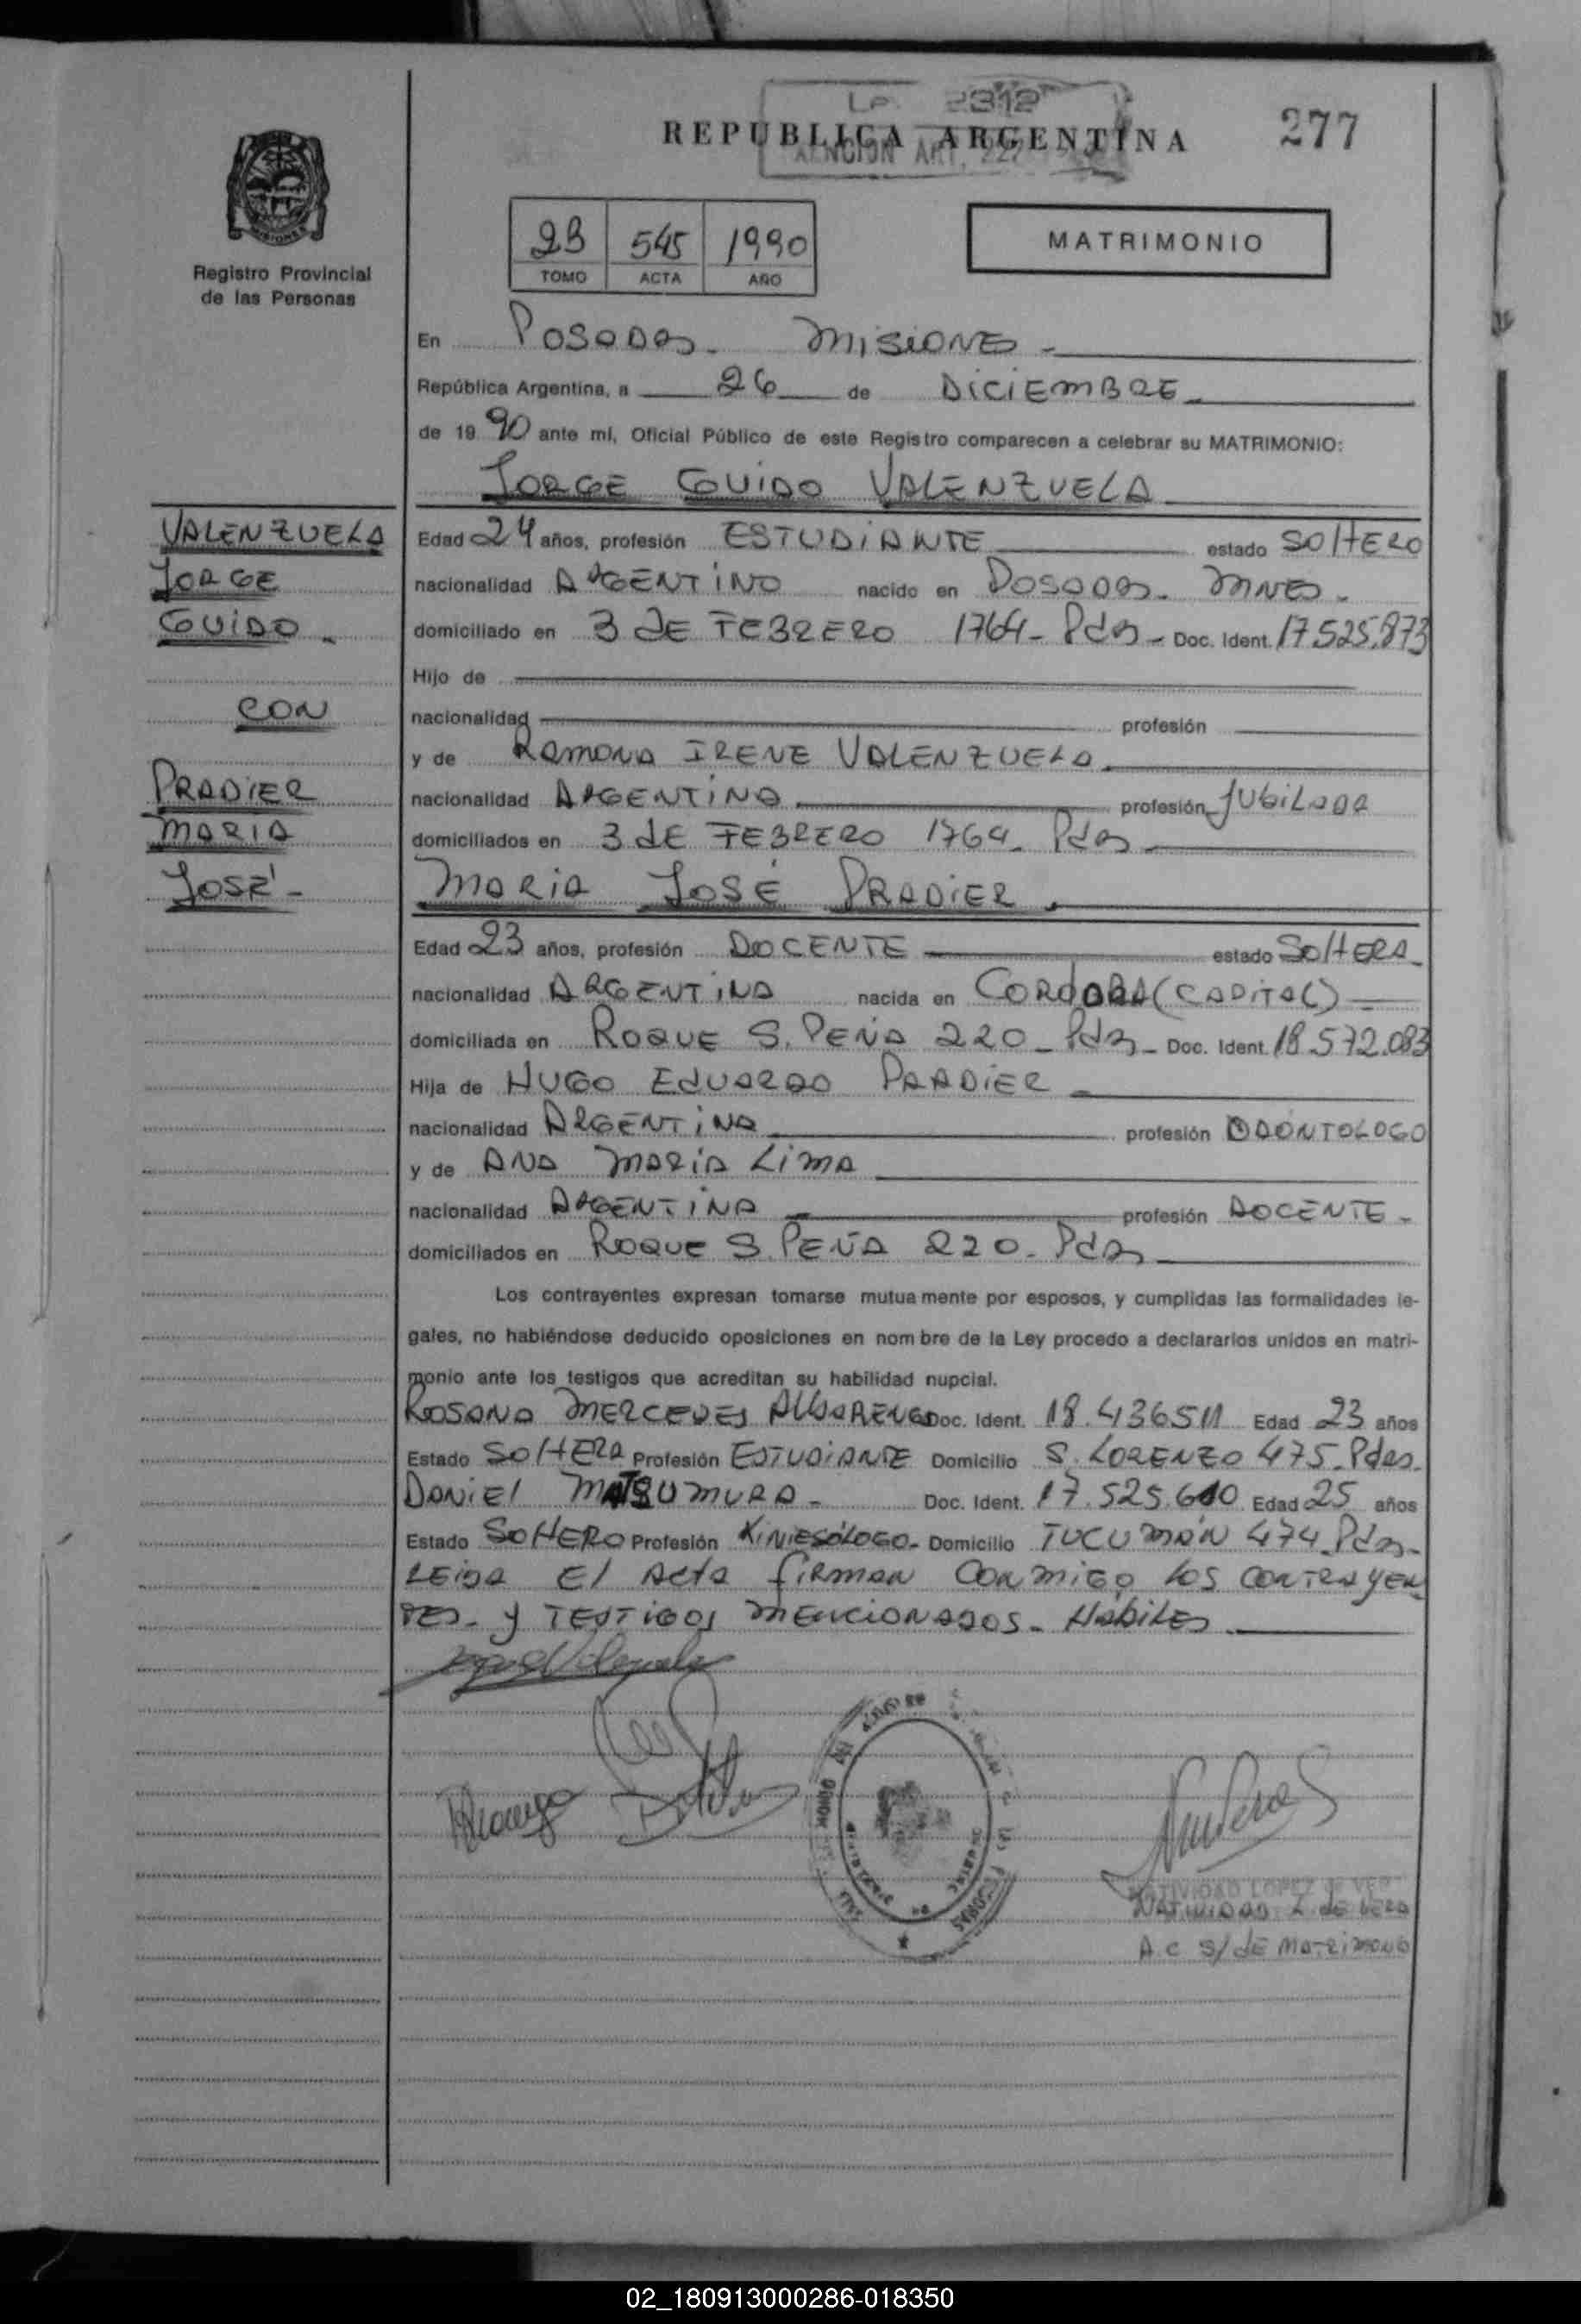 LP. 2312
REPUBLICA ARGENTINA
277
ATENCION ART. 227
MISIONES
Registro Provincial
de las Personas
23 545 1990
TOMO ACTA AÑO
MATRIMONIO
En POSADAS. MISIONES
República Argentina, a 26 de DICIEMBRE
de 1990 ante mí, Oficial Público de este Registro comparecen a celebrar su MATRIMONIO:
JORGE GUIDO VALENZUELA
VALENZUELA
JORGE
GUIDO.
CON
PRADIER
MARIA
JOSÉ
Edad 24 años, profesión ESTUDIANTE estado SOLTERO
nacionalidad ARGENTINO nacido en POSADAS. MNES.
domiciliado en 3 DE FEBRERO 1764 - Pdas - Doc. Ident. 17.525.873
Hijo de
nacionalidad profesión
y de RAMONA IRENE VALENZUELA.
nacionalidad ARGENTINA profesión JUBILADA
domiciliados en 3 dE FEBRERO 1764. Pdas
MARIA JOSÉ PRADIER.
Edad 23 años, profesión DOCENTE estado SOLTERA
nacionalidad ARGENTINA nacida en CORDOBA (CAPITAL)
domiciliada en ROQUE S. PEÑA 220 - Pdas - Doc. Ident. 18.572.083
Hija de HUGO EDUARDO PRADIER
nacionalidad ARGENTINA profesión ODONTOLOGO
y de ANA MARÍA LIMA
nacionalidad ARGENTINA profesión DOCENTE
domiciliados en ROQUE S. PEÑA 220 - Pdas
Los contrayentes expresan tomarse mutuamente por esposos, y cumplidas las formalidades le-
gales, no habiéndose deducido oposiciones en nombre de la Ley procedo a declararlos unidos en matri-
monio ante los testigos que acreditan su habilidad nupcial.
ROSANA MERCEDES ALVARENGA Doc. Ident. 18.436511 Edad 23 años
Estado SOLTERA Profesión ESTUDIANTE Domicilio S. LORENZO 475 - Pdas.
DANIEL MATSUMURA - Doc. Ident. 17.525.610 Edad 25 años
Estado SOLTERO Profesión KINIESÓLOGO - Domicilio TUCUMÁN 474 Pdas.
LEIDA El ACTA FIRMAN CONMIGO LOS CONTRAYEN
TES - Y TESTIGOS MENCIONADOS - HABILES
NATIVIDAD LOPEZ de VERA
NATIVIDAD L. DE VERA
A.C S/ dE MATRIMONIO
02_180913000286-018350